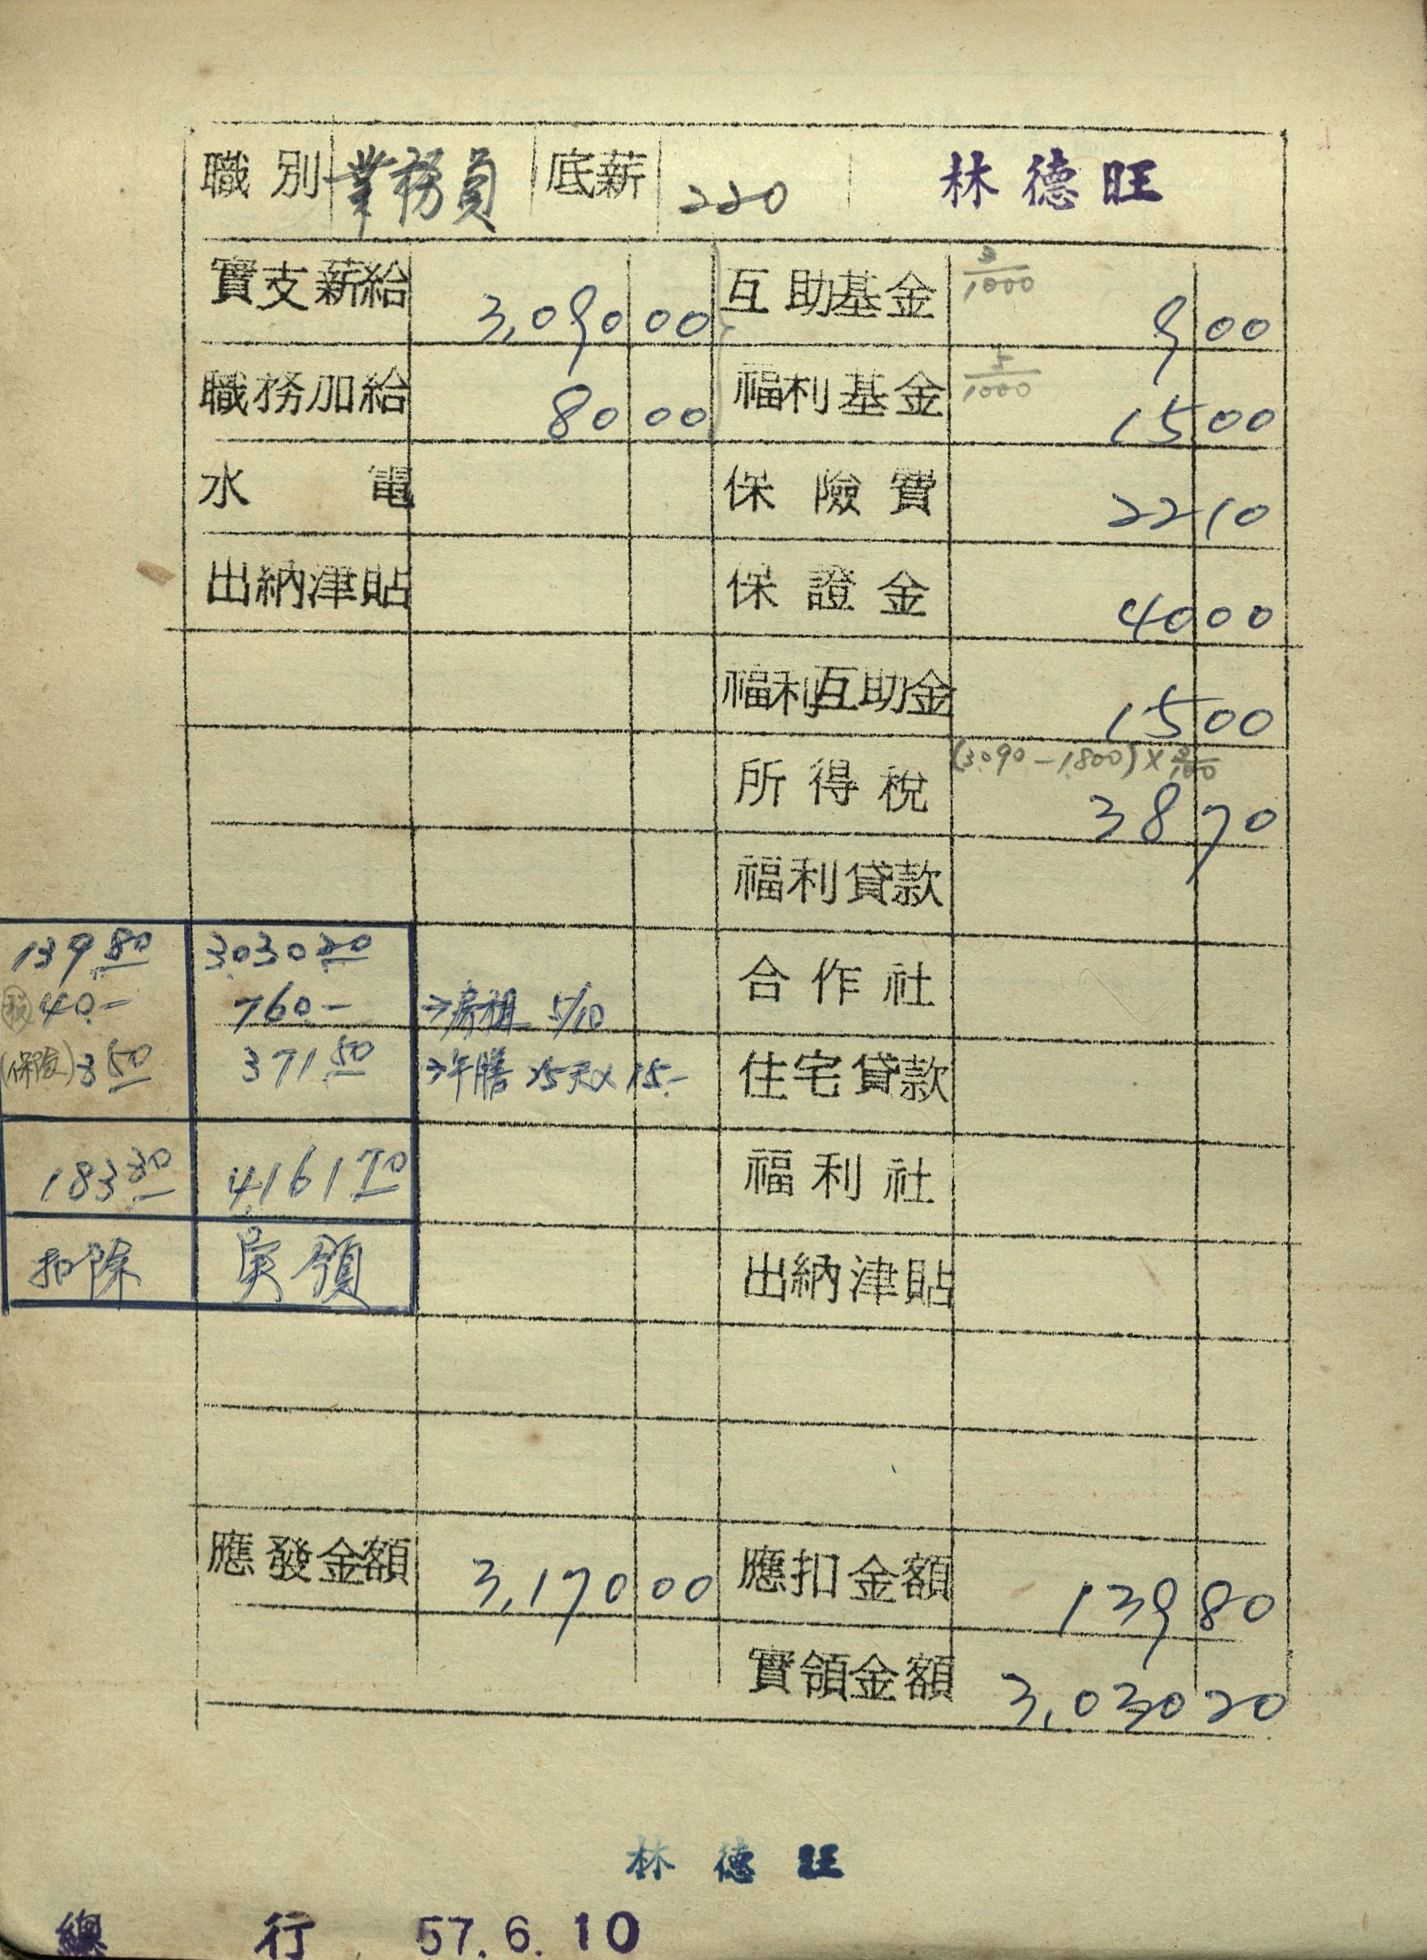 職別 業務員 底薪 220 林德旺
實支薪給 3,090 00 互助基金 3/1000 9 00
職務加給 80 00 福利基金 5/1000 15 00
水電 保險費 22 10
出納津貼 保證金 40 00
福利互助金 15 00
所得稅 (3.090-1.800)×3/100 38 70
福利貸款
139.80 3.030.20 合作社
40.- 760.- →房租 5/10
(保險)3.50 371.50 →午膳 25天×15.- 住宅貸款
183.30 4,161.70 福利社
扣除 実領 出納津貼
應發金額 3,170 00 應扣金額 139 80
實領金額 3,030 20
林德旺
總行 57.6.10